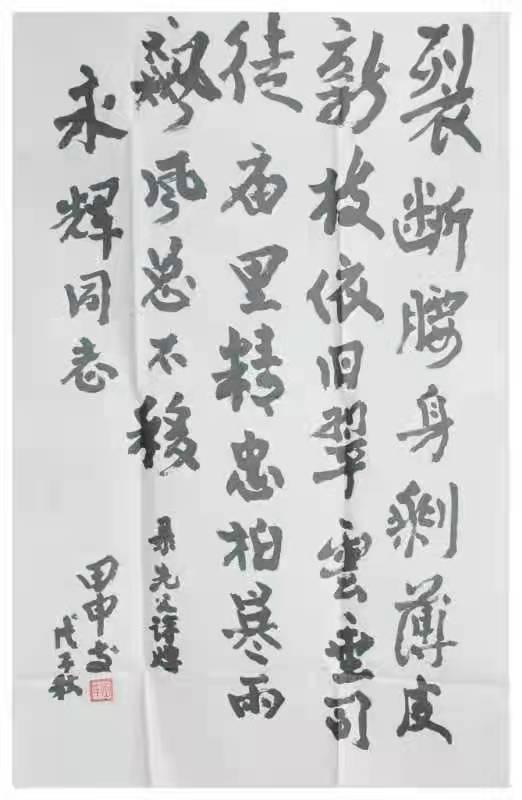 裂断腰身剩薄皮
新枝依旧翠雲垂司
徒庙里精忠柏暴雨
飙风总不移
录先父诗赠
永辉同志
田申书
戊子秋